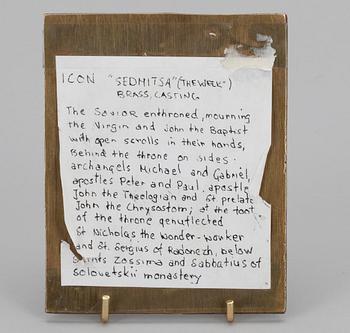 ICON "SEDMITSA" (THE WEEK")
BRASS, CASTING
The Savior enthroned, mourning
the Virgin and John the Baptist
with open scrolls in their hands,
Behind the throne on sides:
archangels Michael and Gabriel,
apostles Peter and Paul, apostle
John the Theologian and St prelate
John the Chrysostom; at the foot
of the throne genuflected
St Nicholas the Wonder-worker
and St. Sergius of Radonezh, below
Saints Zossima and Sabbatius of
Solovetskii monastery